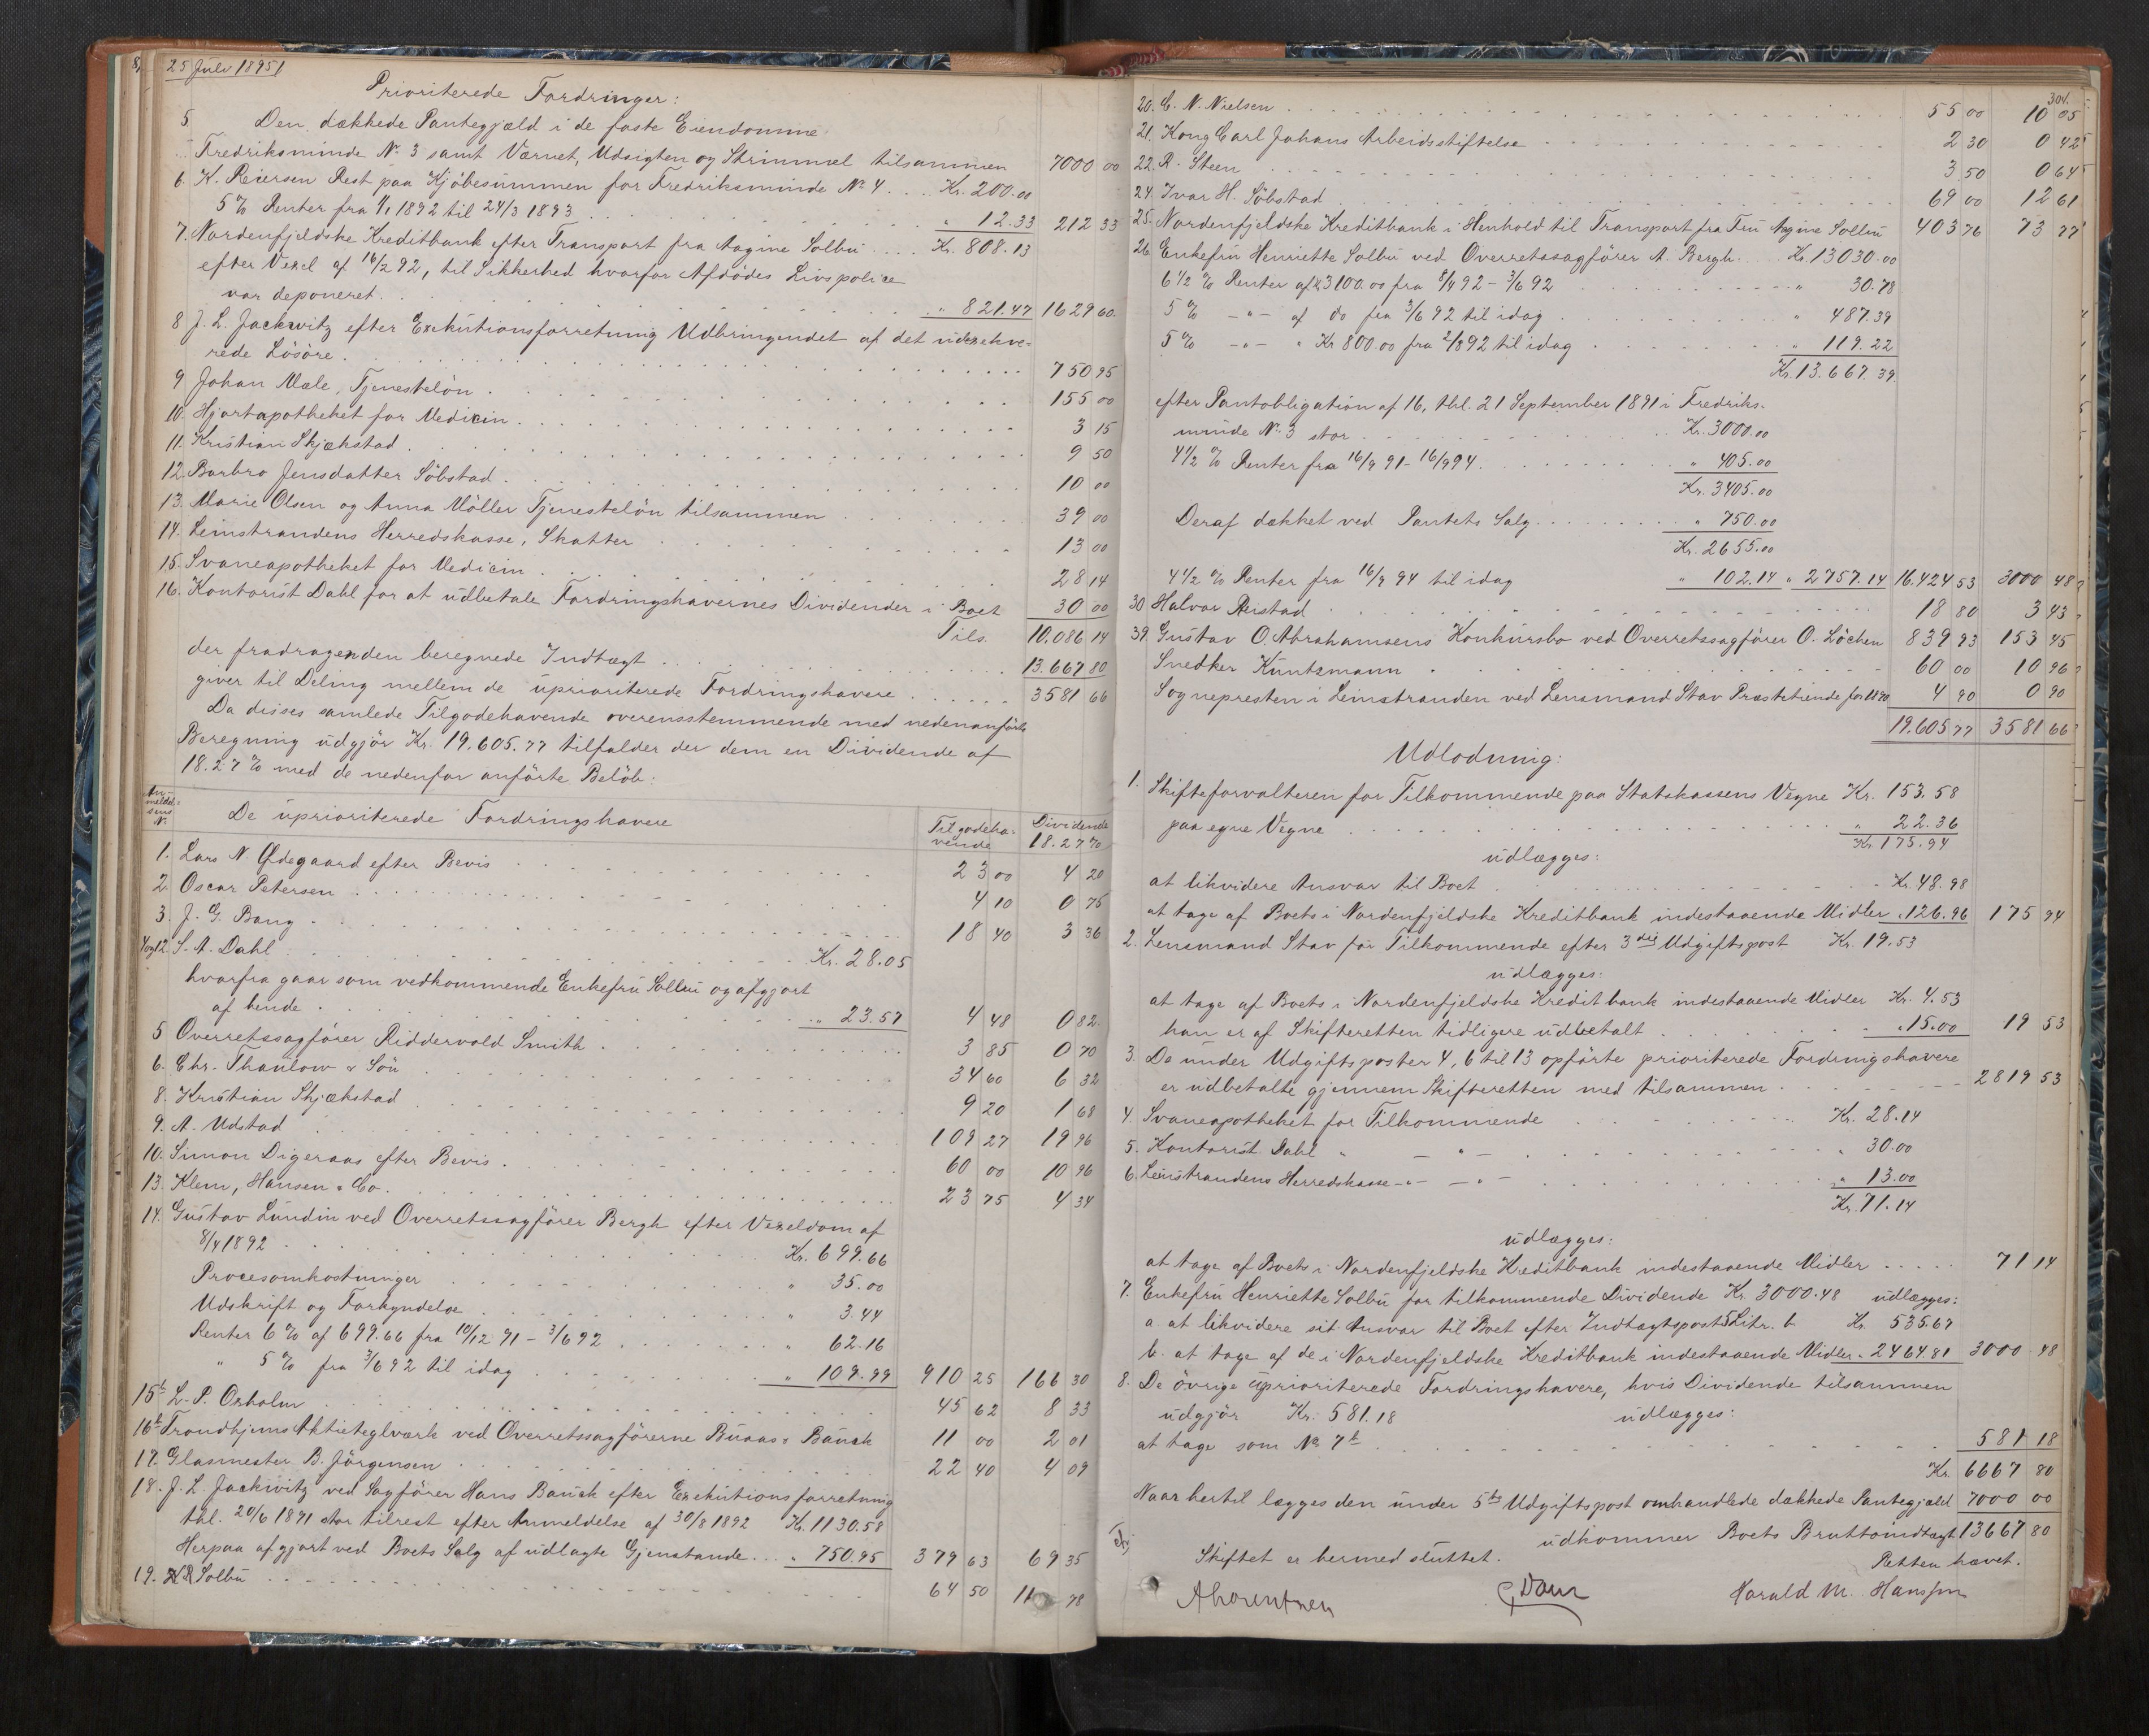 25 Juli 1895
Prioriterede Fordringer:
5. Den dækkede Pantegjæld i de faste Eiendomme
Fredriksminde No 3 samt Værnet, Udsigten og Strimmel tilsammen 7000 00
6. K. Reiersen Rest paa Kjöbesummen for Fredriksminde No 4 . . Kr. 200.00
5 % Renter fra 1/1 1892 til 24/3 1893 . . . " 12.33 212 33
7. Nordenfjeldske Kreditbank efter Transport fra Aagine Solbu . . . Kr. 808.13
efter Vexel af 16/2 92, til Sikkerhed hvorfor Afdödes Livspolice
var deponeret . . . " 821.47 1629 60
8 J. L. Jackwitz efter Exekutionsforretning Udbringendet af det udexekve-
rede Lösöre . . . 750 95
9 Johan Mæle, Tjenestelön . . . 155 00
10. Hjortapotheket for Medicin . . . 3 15
11. Kristian Skjækstad . . . 9 50
12. Barbro Jensdatter Söbstad . . . 10 00
13. Marie Olsen og Anna Möller Tjenestelön tilsammen . . . 39 00
14. Leinstrandens Herredskasse, Skatter . . . 13 00
15. Svaneapotheket for Medicin . . . 28 14
16. Kontorist Dahl for at udbetale Fordringshavernes Dividender i Boet 30 00
Tils. 10.086 14
der fradragenden beregnede Indtægt . . . 13.667 80
giver til Deling mellem de uprioriterede Fordringshavere . . . 3581 66
Da disses samlede Tilgodehavende overensstemmende med nedenanförte
Beregning udgjör Kr. 19.605.77 tilfalder der dem en Dividende af
18.27 % med de nedenfor anförte Belöb:
An-meldelsens N. De uprioriterede Fordringshavere Tilgodehavende Dividende 18.27 %
1. Lars N. Ødegaard efter Bevis . . . 23 00 4 20
2. Oscar Petersen . . . 4 10 0 75
3. J. G. Bang . . . 18 40 3 36
4 og 12. S. A. Dahl . . . Kr. 28.05
hvorfra gaar som vedkommende Enkefru Solbu og afgjort
af hende . . . " 23.57 4 48 0 82
5 Overretssagförer Riddervold Smith . . . 3 85 0 70
6. Chr. Thaulow & Sön . . . 34 60 6 32
8. Kristian Skjækstad . . . 9 20 1 68
9. A. Udstad . . . 109 27 19 96
10. Simon Digeraas efter Bevis . . . 60 00 10 96
13. Klem, Hansen & Co. . . . 23 75 4 34
14. Gustav Lundin ved Overretssagförer Bergh efter Vexeldom af
8/4 1892 . . . Kr. 699.66
Procesomkostninger . . . " 35.00
Udskrift og Forkyndelse . . . " 3.44
Renter 6 % af 699.66 fra 10/12 91 - 3/6 92 . . . " 62.16
" 5 % fra 3/6 92 til idag . . . " 109.99 910 25 166 30
15 L. P. Oxholm . . . 45 62 8 33
16 Trondhjems Aktieteglværk ved Overretssagförerne Buaas & Bauck 11 00 2 01
17. Glasmester B. Jörgensen . . . 22 40 4 09
18. J. L. Jackwitz ved Sagförer Hans Bauck efter Exekutionsforretning
thl. 20/6 1891 stor tilrest efter Anmeldelse af 30/8 1892 Kr. 1130.58
Herpaa afgjort ved Boets Salg af udlagte Gjenstande . . . " 750.95 379 63 69 35
19. Solbu . . . 64 50 11 78
304.
20. C. N. Nielsen . . . 55 00 10 05
21. Kong Carl Johans Arbeidsstiftelse . . . 2 30 0 42
22. R. Steen . . . 3 50 0 64
24. Ivar H. Söbstad . . . 69 00 12 61
25. Nordenfjeldske Kreditbank i Henhold til Transport fra Fru Aagine Solbu 403 76 73 77
26. Enkefru Henriette Solbu ved Overretssagförer A. Bergh . . Kr. 13030.00
6 1/2 % Renter af Kr 3100.00 fra 8/4 92 - 3/6 92 . . . " 30.78
5 % - " - af do fra 3/6 92 til idag . . . " 487.39
5 % - " - " Kr 800.00 fra 2/8 92 til idag . . . " 119.22
Kr. 13.667.39
efter Pantobligation af 16, thl. 21 September 1891 i Fredriks-
minde No 3 stor . . . Kr. 3000.00
4 1/2 % Renter fra 16/9 91 - 16/9 94 . . . " 405.00
Kr. 3405.00
Deraf dækket ved Pantets Salg . . . " 750.00
Kr. 2655.00
4 1/2 % Renter fra 16/9 94 til idag " 102.14 " 2757.14 16.424 53 3000 48
30 Halvor Rustad . . . 18 80 3 43
39. Gustav O Abrahamsens Konkursbo ved Overretssagförer O. Löchen 839 93 153 45
Snedker Kuntzmann . . . 60 00 10 96
Sognepresten i Leinstranden ved Lensmand Stav Præstetiende for 1890 4 90 0 90
19.605 77 3581 66
Udlodning:
1. Skifteforvalteren for Tilkommende paa Statskassens Vegne Kr. 153.58
paa egne Vegne . . . " 22.36
Kr. 175.94
udlægges:
at likvidere Ansvar til Boet . . . Kr. 48.98
at tage af Boets i Nordenfjeldske Kreditbank indestaaende Midler " 126.96 175 94
2. Lensmand Stav for Tilkommende efter 3die Udgiftspost Kr. 19.53
udlægges:
at tage af Boets i Nordenfjeldske Kreditbank indestaaende Midler Kr. 4.53
han er af Skifteretten tidligere udbetalt . . . " 15.00 19 53
3. De under Udgiftsposter 4, 6 til 13 opförte prioriterede Fordringshavere
er udbetalte gjennem Skifteretten med tilsammen . . . 2819 53
4. Svaneapotheket for Tilkommende . . . Kr. 28.14
5. Kontorist Dahl " - " - . . . " 30.00
6. Leinstrandens Herredskasse - " - - " - . . . " 13.00
Kr. 71.14
udlægges:
at tage af Boets i Nordenfjeldske Kreditbank indestaaende Midler . . . . . 71 14
7. Enkefru Henriette Solbu for tilkommende Dividende Kr. 3000.48 udlægges:
a. at likvidere sit Ansvar til Boet efter Indtægtspost 5 Litr. b Kr. 535.67
b. at tage af de i Nordenfjeldske Kreditbank indestaaende Midler " 2464.81 3000 48
8. De övrige uprioriterede Fordringshavere, hvis Dividende tilsammen
udgjör Kr. 581.18 udlægges:
at tage som No 7 b . . . 581 18
Kr. 6667 80
Naar hertil lægges den under 5te Udgiftspost omhandlede dækkede Pantegjæld 7000 00
udkommer Boets Bruttoindtægt 13667 80
Skiftet er hermed sluttet.
Retten hævet.
Harald M. Hansson